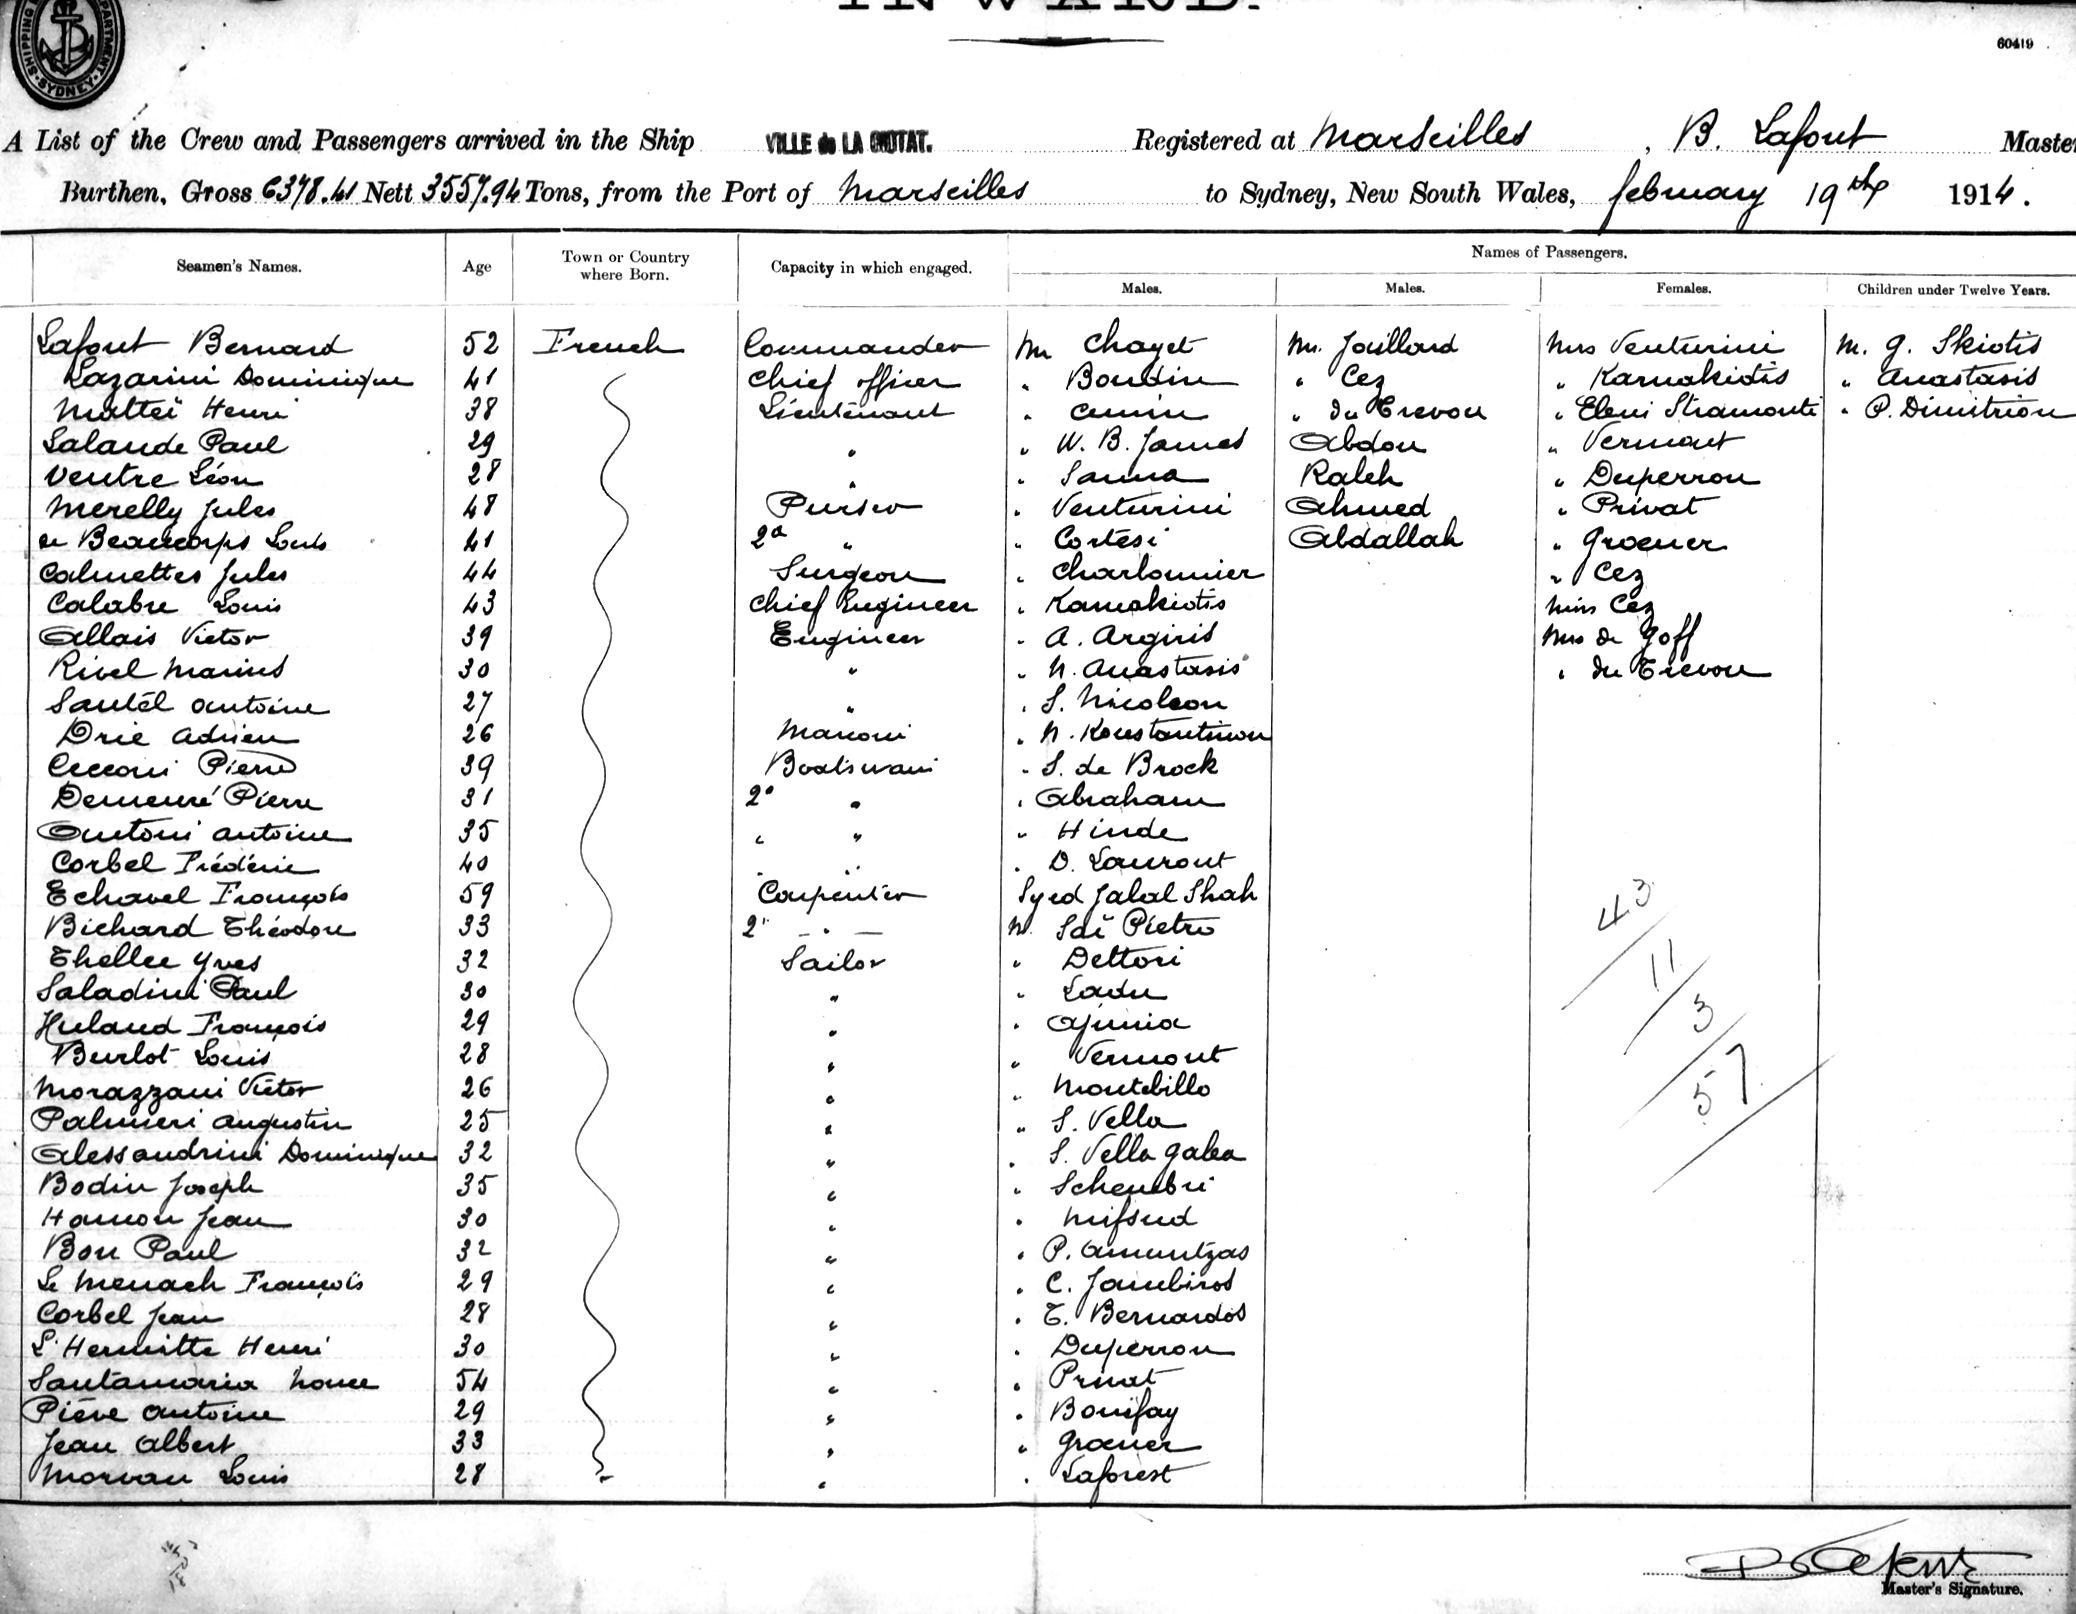 INWARD.
SHIPPING DEPARTMENT SYDNEY
60419
A List of the Crew and Passengers arrived in the Ship VILLE de LA CIOTAT. Registered at Marseilles, B. Lafont Master
Burthen, Gross 6378.41 Nett 3557.94 Tons, from the Port of Marseilles to Sydney, New South Wales, february 19th 1914.
Seamen's Names. Age Town or Country where Born. Capacity in which engaged. Names of Passengers.
Males. Males. Females. Children under Twelve Years.
Lafont Bernard 52 French Commander Mr Chayet Mr. Joillard Mrs Venturini M. G. Skiotis
Lazarini Dominique 41 Chief officer " Boudin " Cez " Kamakiotis " Anastasis
Mattei Henri 38 Lieutenant " Cumin " du Trevou " Eleni Stramonti " P. Dimitriou
Lalande Paul 29 " " W. B. James Abdou " Vermont
Ventre Léon 28 " " Sanna Raleh " Duperrou
Merelly Jules 48 Purser " Venturini Ahmed " Privat
de Beaucorps Louis 41 2d " " Cortesi Abdallah " Groener
Calmettes Jules 44 Surgeon " Charbonnier " Cez
Calabre Louis 43 Chief Engineer " Kamakiotis Miss Cez
Allais Victor 39 Engineer " A. Argiris Mrs de Goff
Rivel Marius 30 " " N. Anastasis " du Trevou
Santél Antoine 27 " " S. Nicoleou
Drie Adrien 26 Marconi " N. Konstantinou
Cecconi Pierre 39 Boatswain " S. de Brock
Demeuré Pierre 31 2d " " Abraham
Ontoni Antoine 35 " " " Hinde
Corbel Frédéric 40 " " " D. Laurout
Echavel François 59 Carpenter Syed Jalal Shah
Bichard Théodore 33 2d " M. Saï Pietro
Thellee Yves 32 Sailor " Dettori
Saladini Paul 30 " " Ladu
Huland François 29 " " Ajunia
Burlot Louis 28 " " Vermont
Morazzani Victor 26 " " Montebillo
Palmieri Augustin 25 " " S. Vella
Alessandrini Dominique 32 " " S. Vella Galea
Bodin Joseph 35 " " Schembri
Hamon Jean 30 " " Mifsud
Bon Paul 32 " " P. Amuntzas
Le Menach François 29 " " C. Jambiros
Corbel Jean 28 " " T. Bernardos
L'Hermitte Henri 30 " " Duperrou
Santamaria 54 " " Privat
Piéve Antoine 29 " " Bonifay
Jean Albert 33 " " Groener
Morvan Louis 28 " " Laforest
43
11
3
57
B Lafont
Master's Signature.